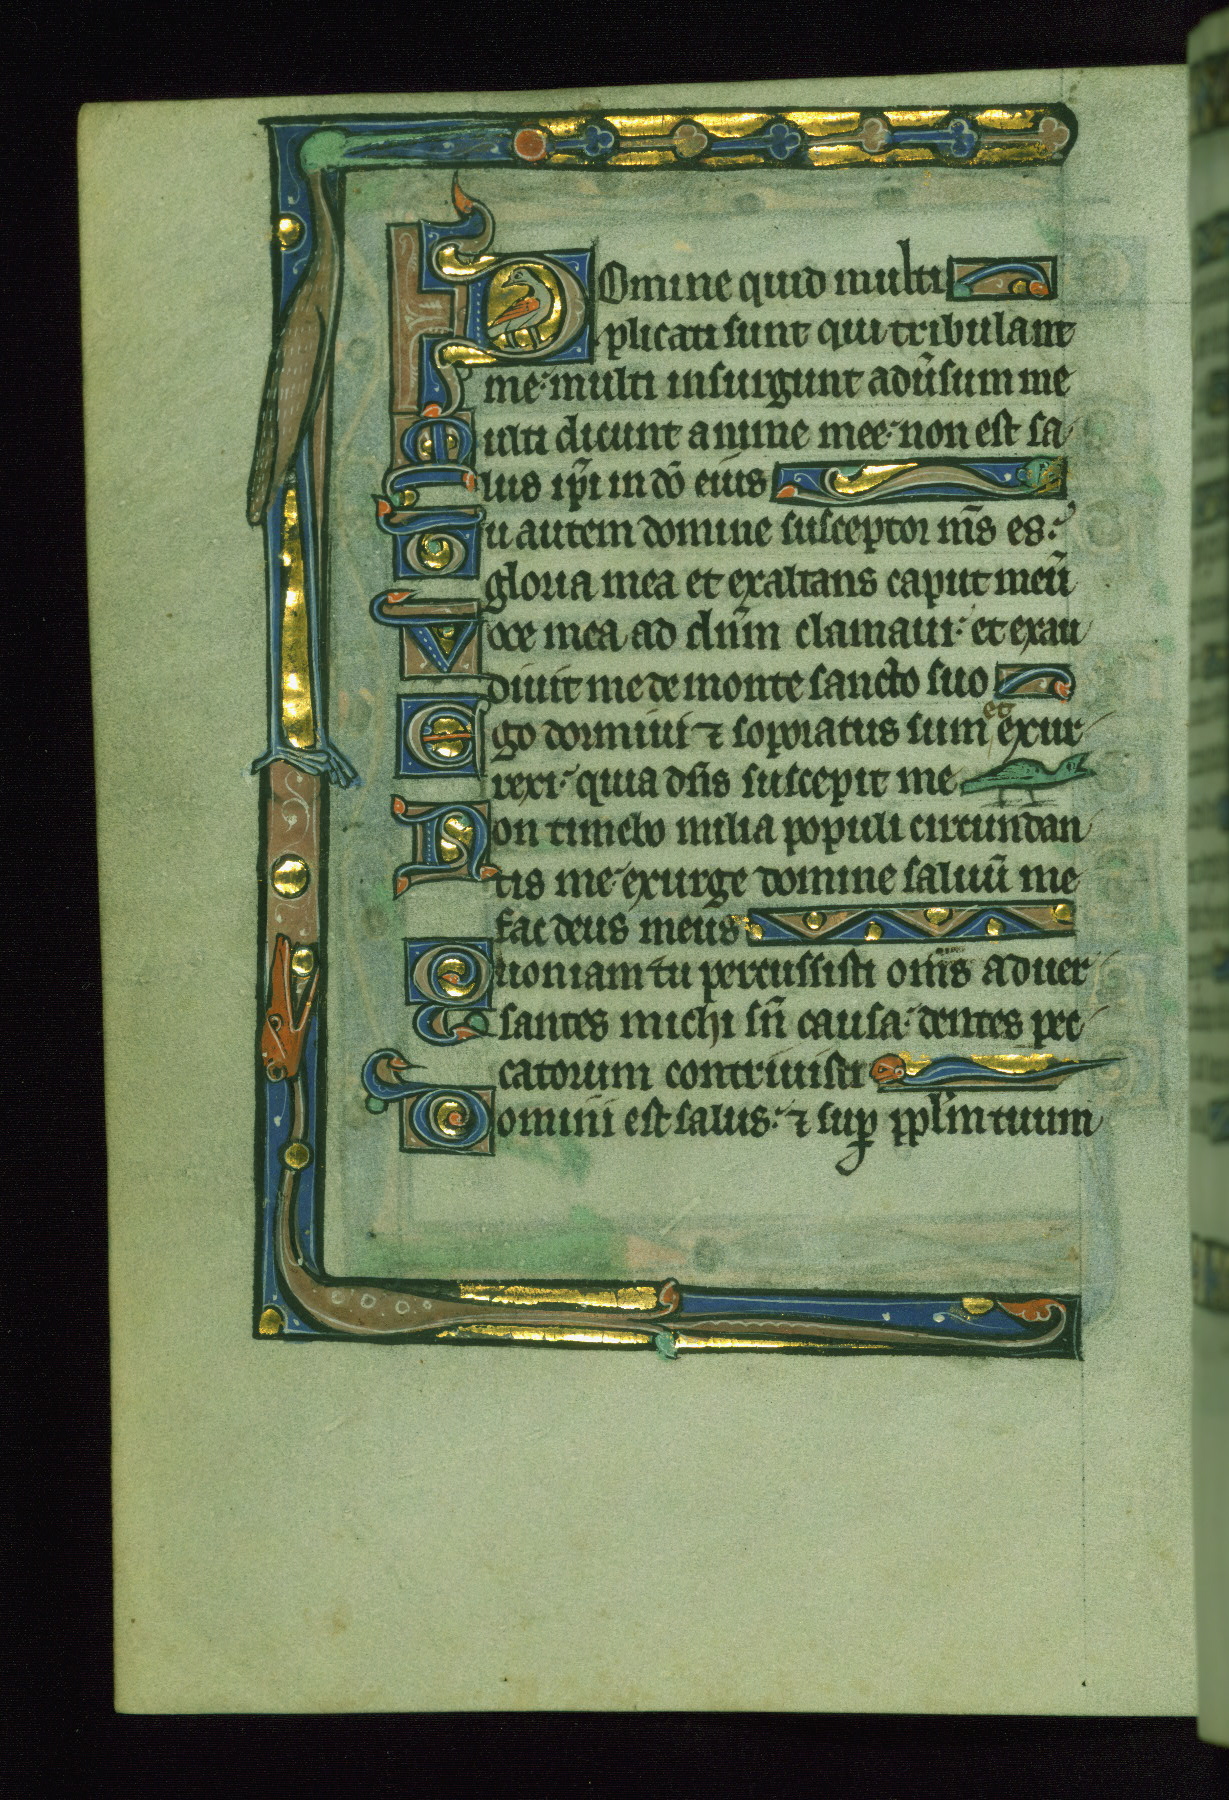 Domine quid multi
plicati sunt qui tribulant
me: multi insurgunt adũsum me
Multi dicunt anime mee: non est sa
lus ip̃i in dõ eius
Tu autem domine susceptor m̃s es:
gloria mea et exaltans caput meũ
Voce mea ad dñm clamaui: et exau
diuit me de monte sancto suo
Ego dormiui ⁊ soporatus sum et exur
rexi: quia dñs suscepit me
Non timebo milia populi circundan
tis me: exurge domine saluũ me
fac deus meus
Quoniam tu percussisti om̃s aduer
santes michi sñ causa: dentes pec
catorum contriuisti
Domini est salus: ⁊ suꝑ pplm̃ tuum